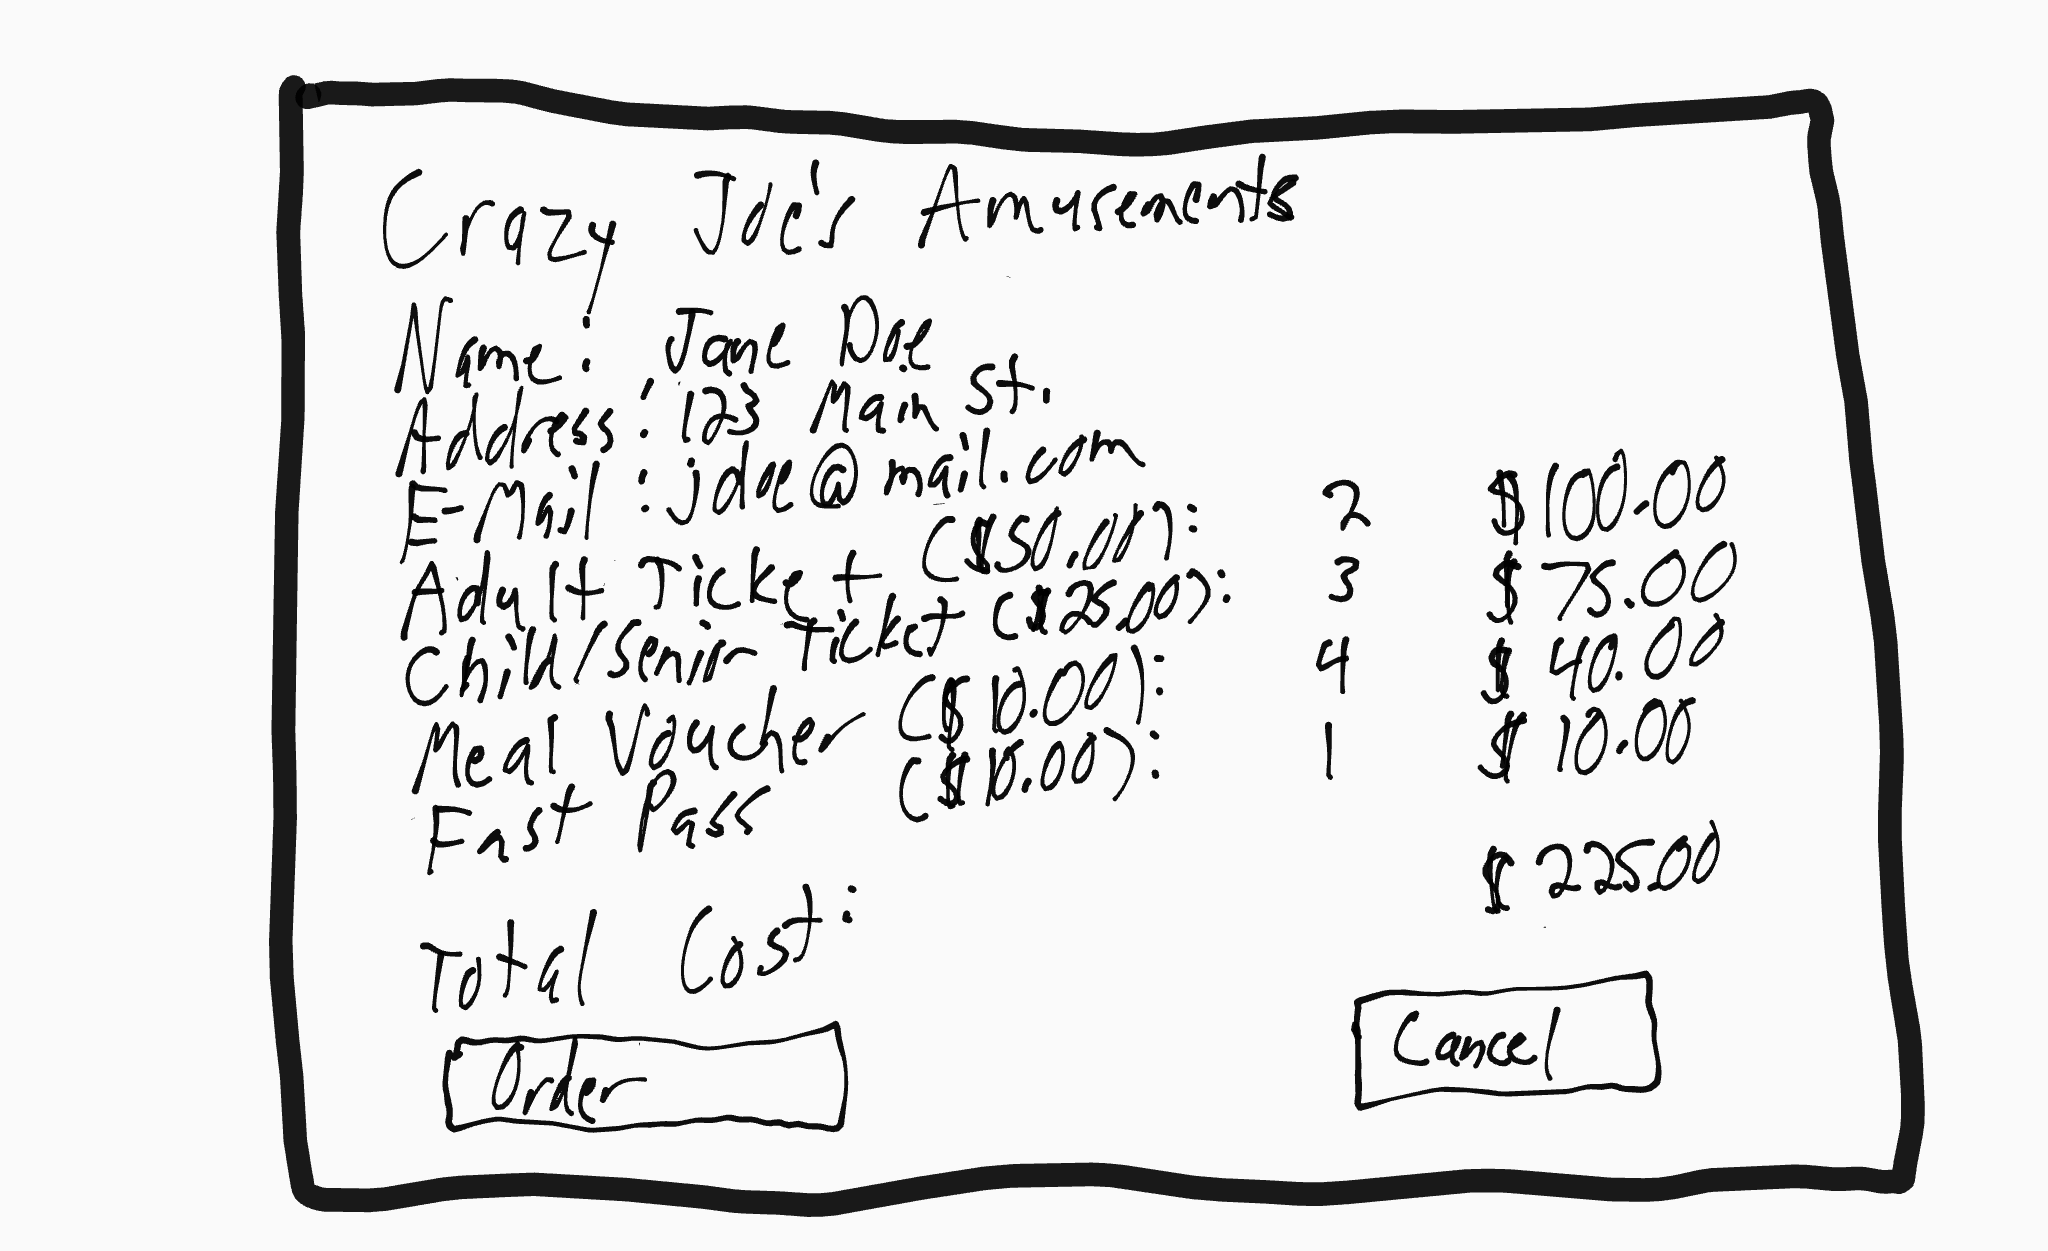 Crazy Joe's Amusements
Name: Jane Doe
Address: 123 Main St.
E-Mail: jdoe@mail.com
Adult Ticket ($50.00): 2 $100.00
Child/Senior Ticket ($25.00): 3 $75.00
Meal Voucher ($10.00): 4 $40.00
Fast Pass ($10.00): 1 $10.00
Total Cost: $225.00
Order Cancel